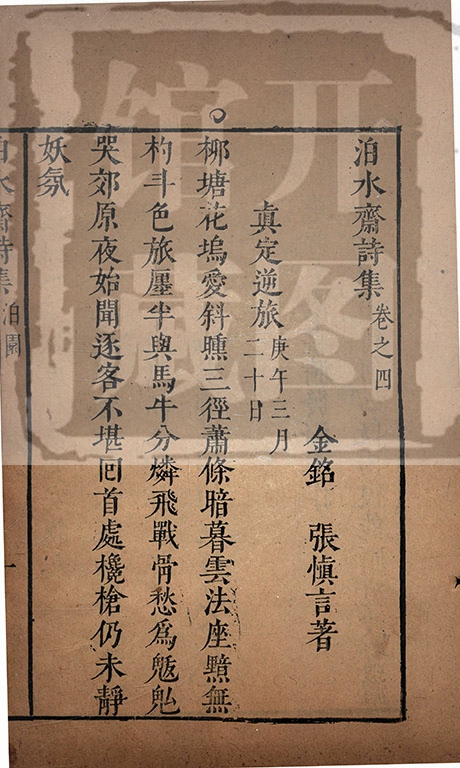 泊水齋詩集卷之四
金銘 張愼言著
眞定逆旅庚午三月
二十日
柳塘花塢愛斜曛三徑蕭條暗暮雲法座黯無
杓斗色旅廛半與馬牛分燐飛戰骨愁爲魃鬼
哭郊原夜始聞逐客不堪囘首處欃槍仍未靜
妖氛
泊水齋詩集 泊園
一
开图
馆藏